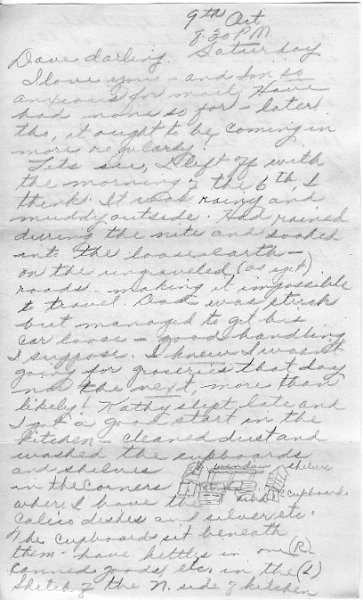 9th Oct
8:30 PM
Saturday
Dave darling,
I love you - and I'm so
anxious for mail. Have
had none so far - later
tho, it ought to be coming in
more regularly.
Lets see, I left off with
the morning of the 6th, I
think. It was rainy and
muddy outside. Had rained
during the nite and soaked
into the loose earth -
on the ungraveled (as yet)
roads - making it impossible
to travel. Dad was stuck
but managed to get his
car loose - good handling
I suppose. I knew I wasn't
going for groceries that day
nor the next, more than
likely! Kathy slept late and
I got a good start in the
kitchen - cleaned dust and
washed the cupboards
and shelves window shelves
in the corners
where I have the cupboards
calico dishes and silver, etc.
The cupboards sit beneath
them - have kettles in one (R.)
canned goods, etc. in the (L)
Sketch of the N. side of kitchen